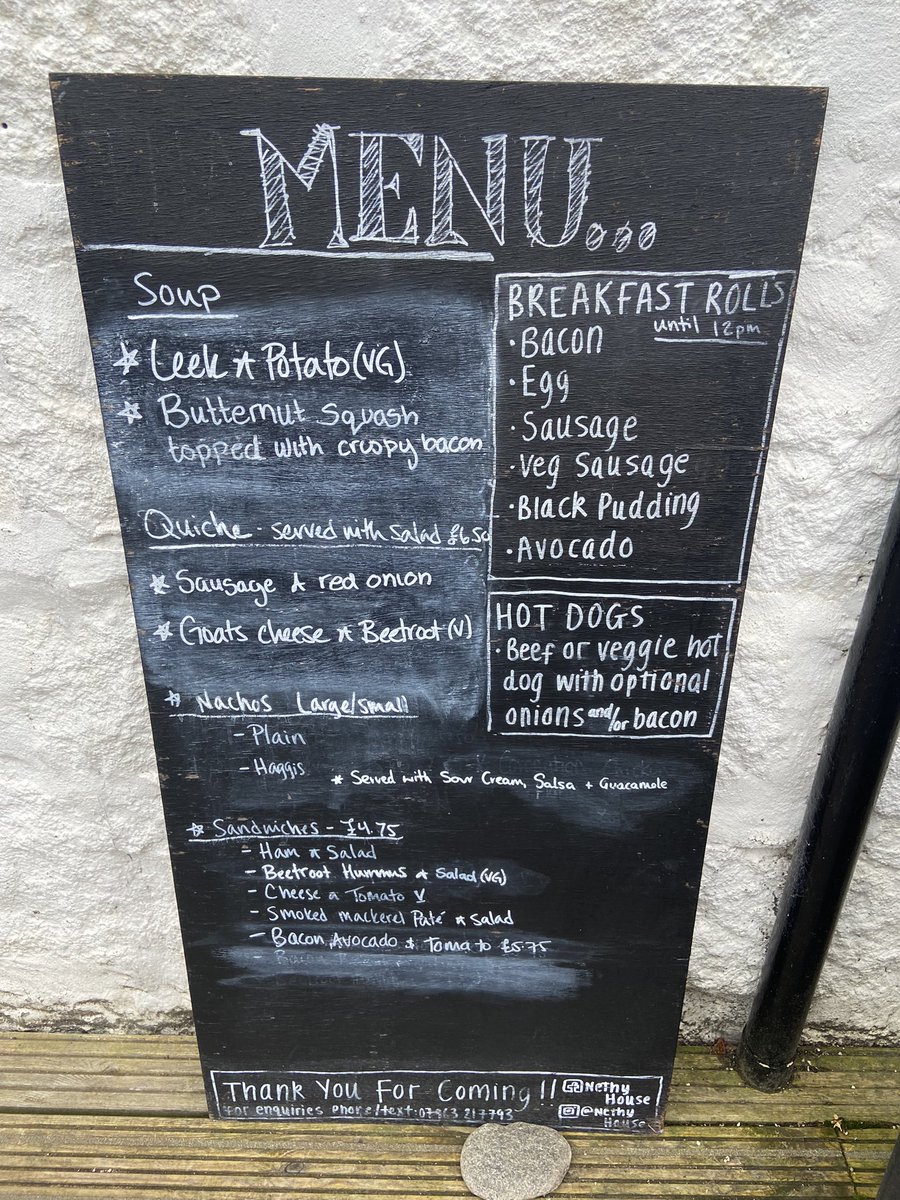 MENU...
Soup
Leek & Potato (VG)
Butternut Squash
topped with crispy bacon
Quiche - served with salad £6.50
Sausage & red onion
Goats cheese & Beetroot (V)
Nachos Large/small
- Plain
- Haggis
* Served with Sour Cream, Salsa + Guacamole
Sandwiches - £4.75
- Ham & Salad
- Beetroot Hummus & Salad (VG)
- Cheese & Tomato V
- Smoked mackerel Paté & Salad
- Bacon, Avocado & Tomato £5.75
BREAKFAST ROLLS
until 12pm
· Bacon
· Egg
· Sausage
· Veg Sausage
· Black Pudding
· Avocado
HOT DOGS
· Beef or veggie hot
dog with optional
onions and/or bacon
Thank You For Coming!!
for enquiries phone/text: 07963 217793
Nethy
House
@Nethy
House